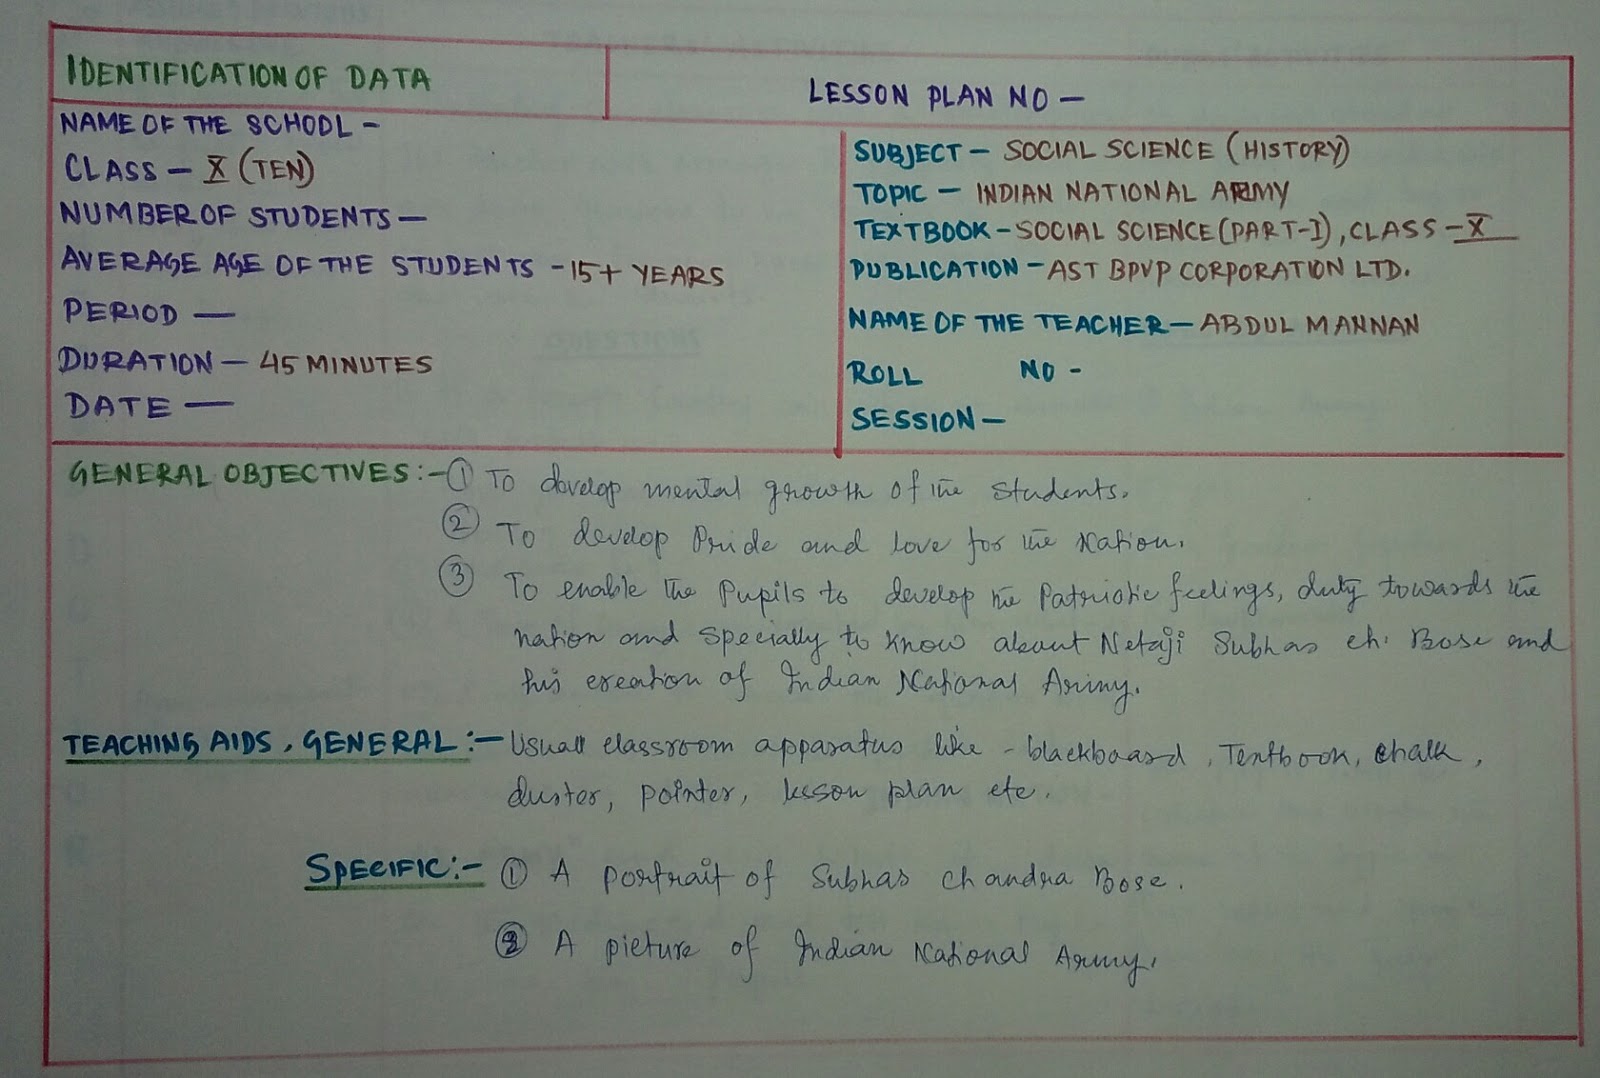 IDENTIFICATION OF DATA
LESSON PLAN NO —
NAME OF THE SCHOOL -
CLASS — X (TEN)
NUMBER OF STUDENTS —
AVERAGE AGE OF THE STUDENTS - 15+ YEARS
PERIOD —
DURATION — 45 MINUTES
DATE —
SUBJECT — SOCIAL SCIENCE (HISTORY)
TOPIC — INDIAN NATIONAL ARMY
TEXTBOOK - SOCIAL SCIENCE (PART-I), CLASS - X
PUBLICATION - AST BPVP CORPORATION LTD.
NAME OF THE TEACHER — ABDUL MANNAN
ROLL NO -
SESSION —
GENERAL OBJECTIVES :- ① To develop mental growth of the students.
② To develop Pride and love for the Nation.
③ To enable the Pupils to develop the Patriotic feelings, duty towards the
nation and specially to know about Netaji Subhas ch. Bose and
his creation of Indian National Army.
TEACHING AIDS, GENERAL :- Usual classroom apparatus like - blackboard, Textbook, chalk,
duster, pointer, lesson plan etc.
SPECIFIC :- ① A portrait of Subhas Chandra Bose.
② A picture of Indian National Army.